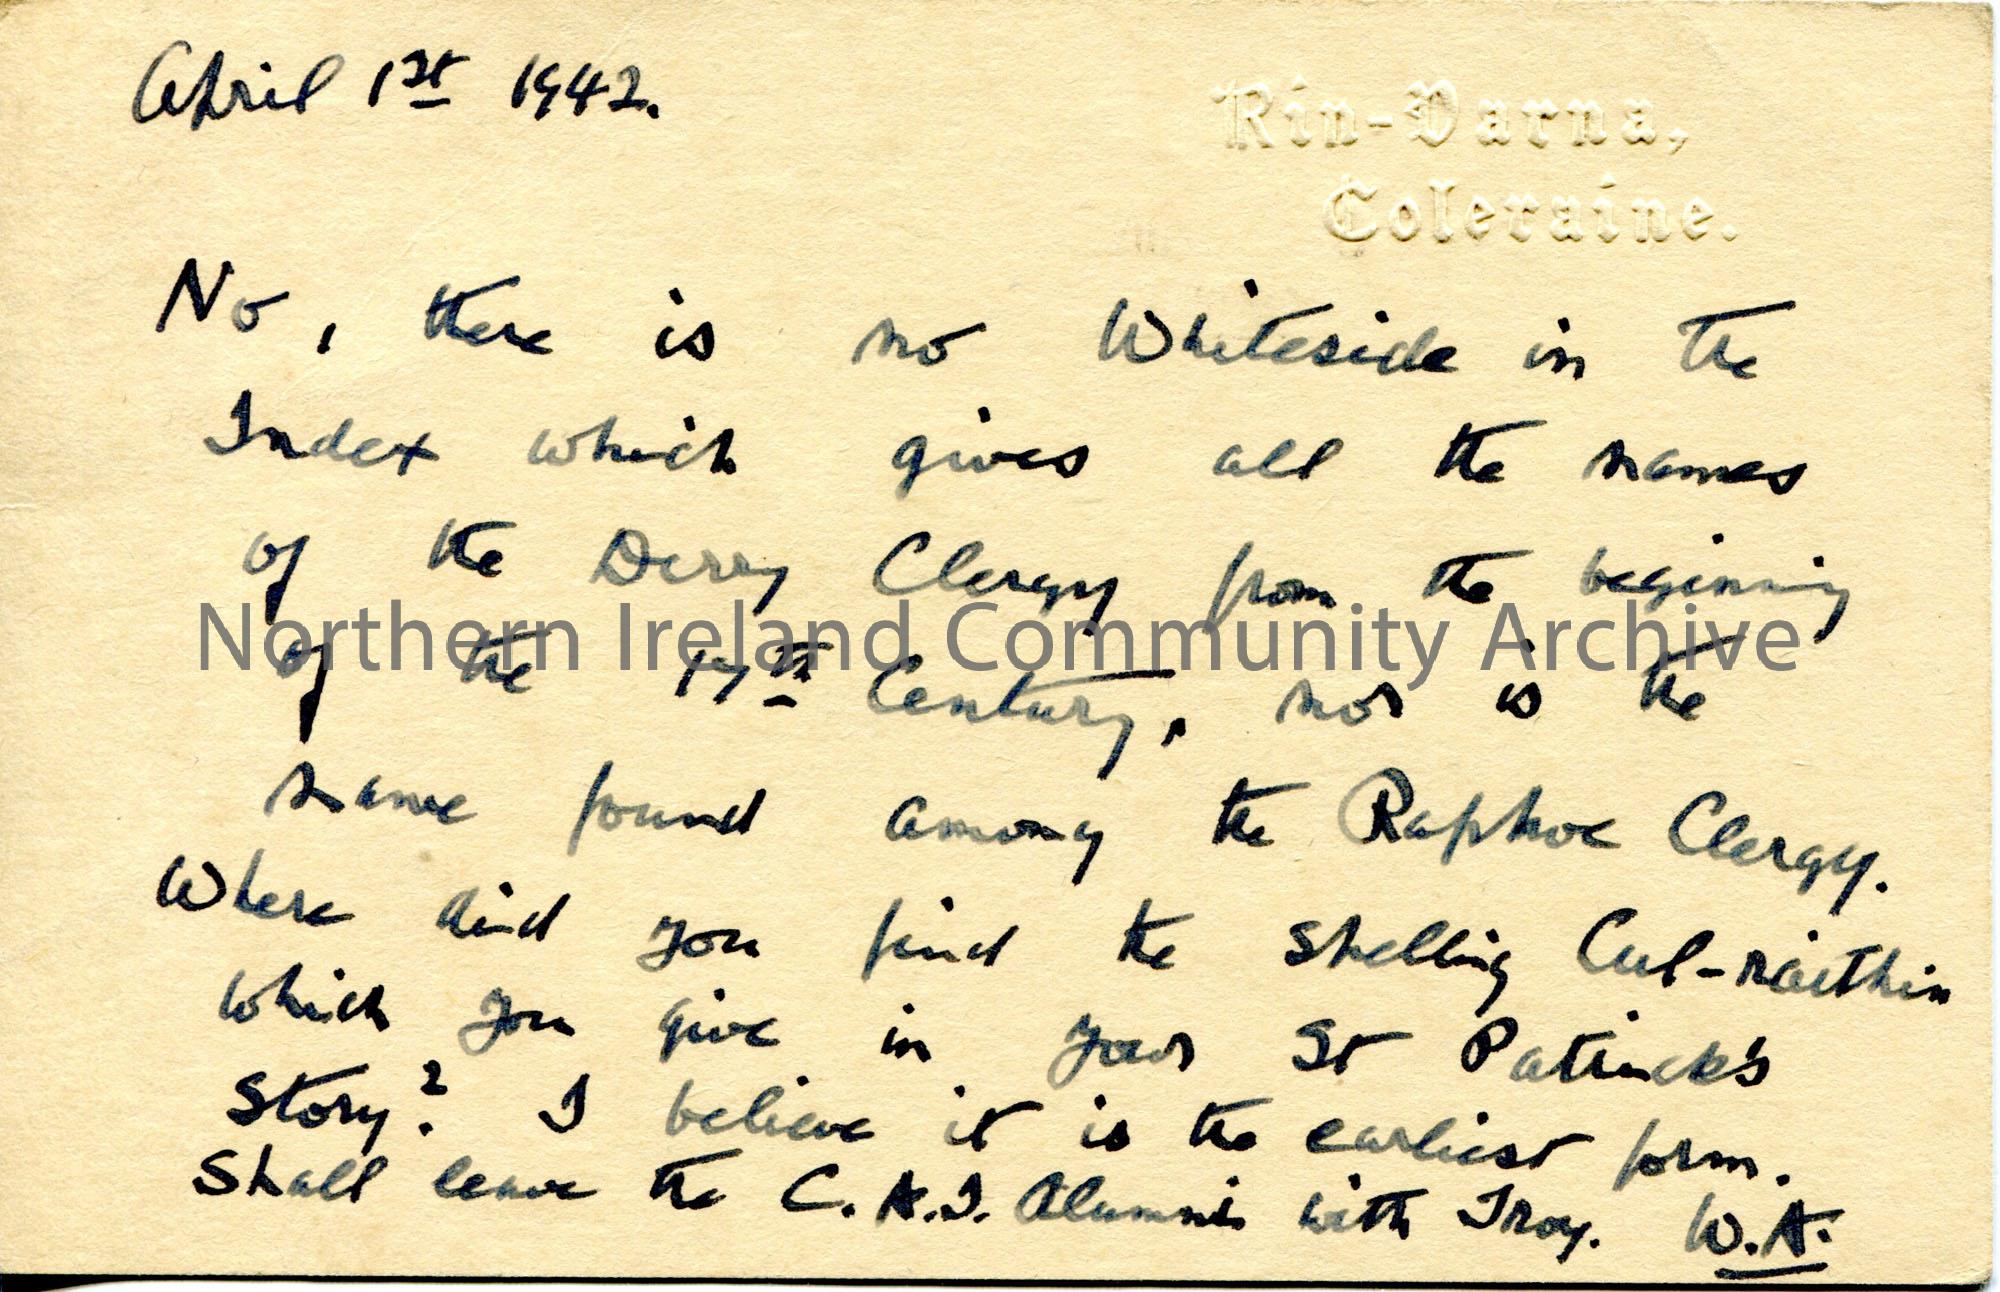 April 1st 1942.
Rin-Varna,
Coleraine.
No, there is no Whiteside in the
Index which gives all the names
of the Derry Clergy from the beginning
Northern Ireland Community Archive
of the 17th Century, nor is the
name found among the Raphoe Clergy.
Where did you find the spelling Cul-raithin
which you give in your St Patrick's
Story? I believe it is the earliest form.
Shall leave the C.A.I. Alumni with Troy. W.A.